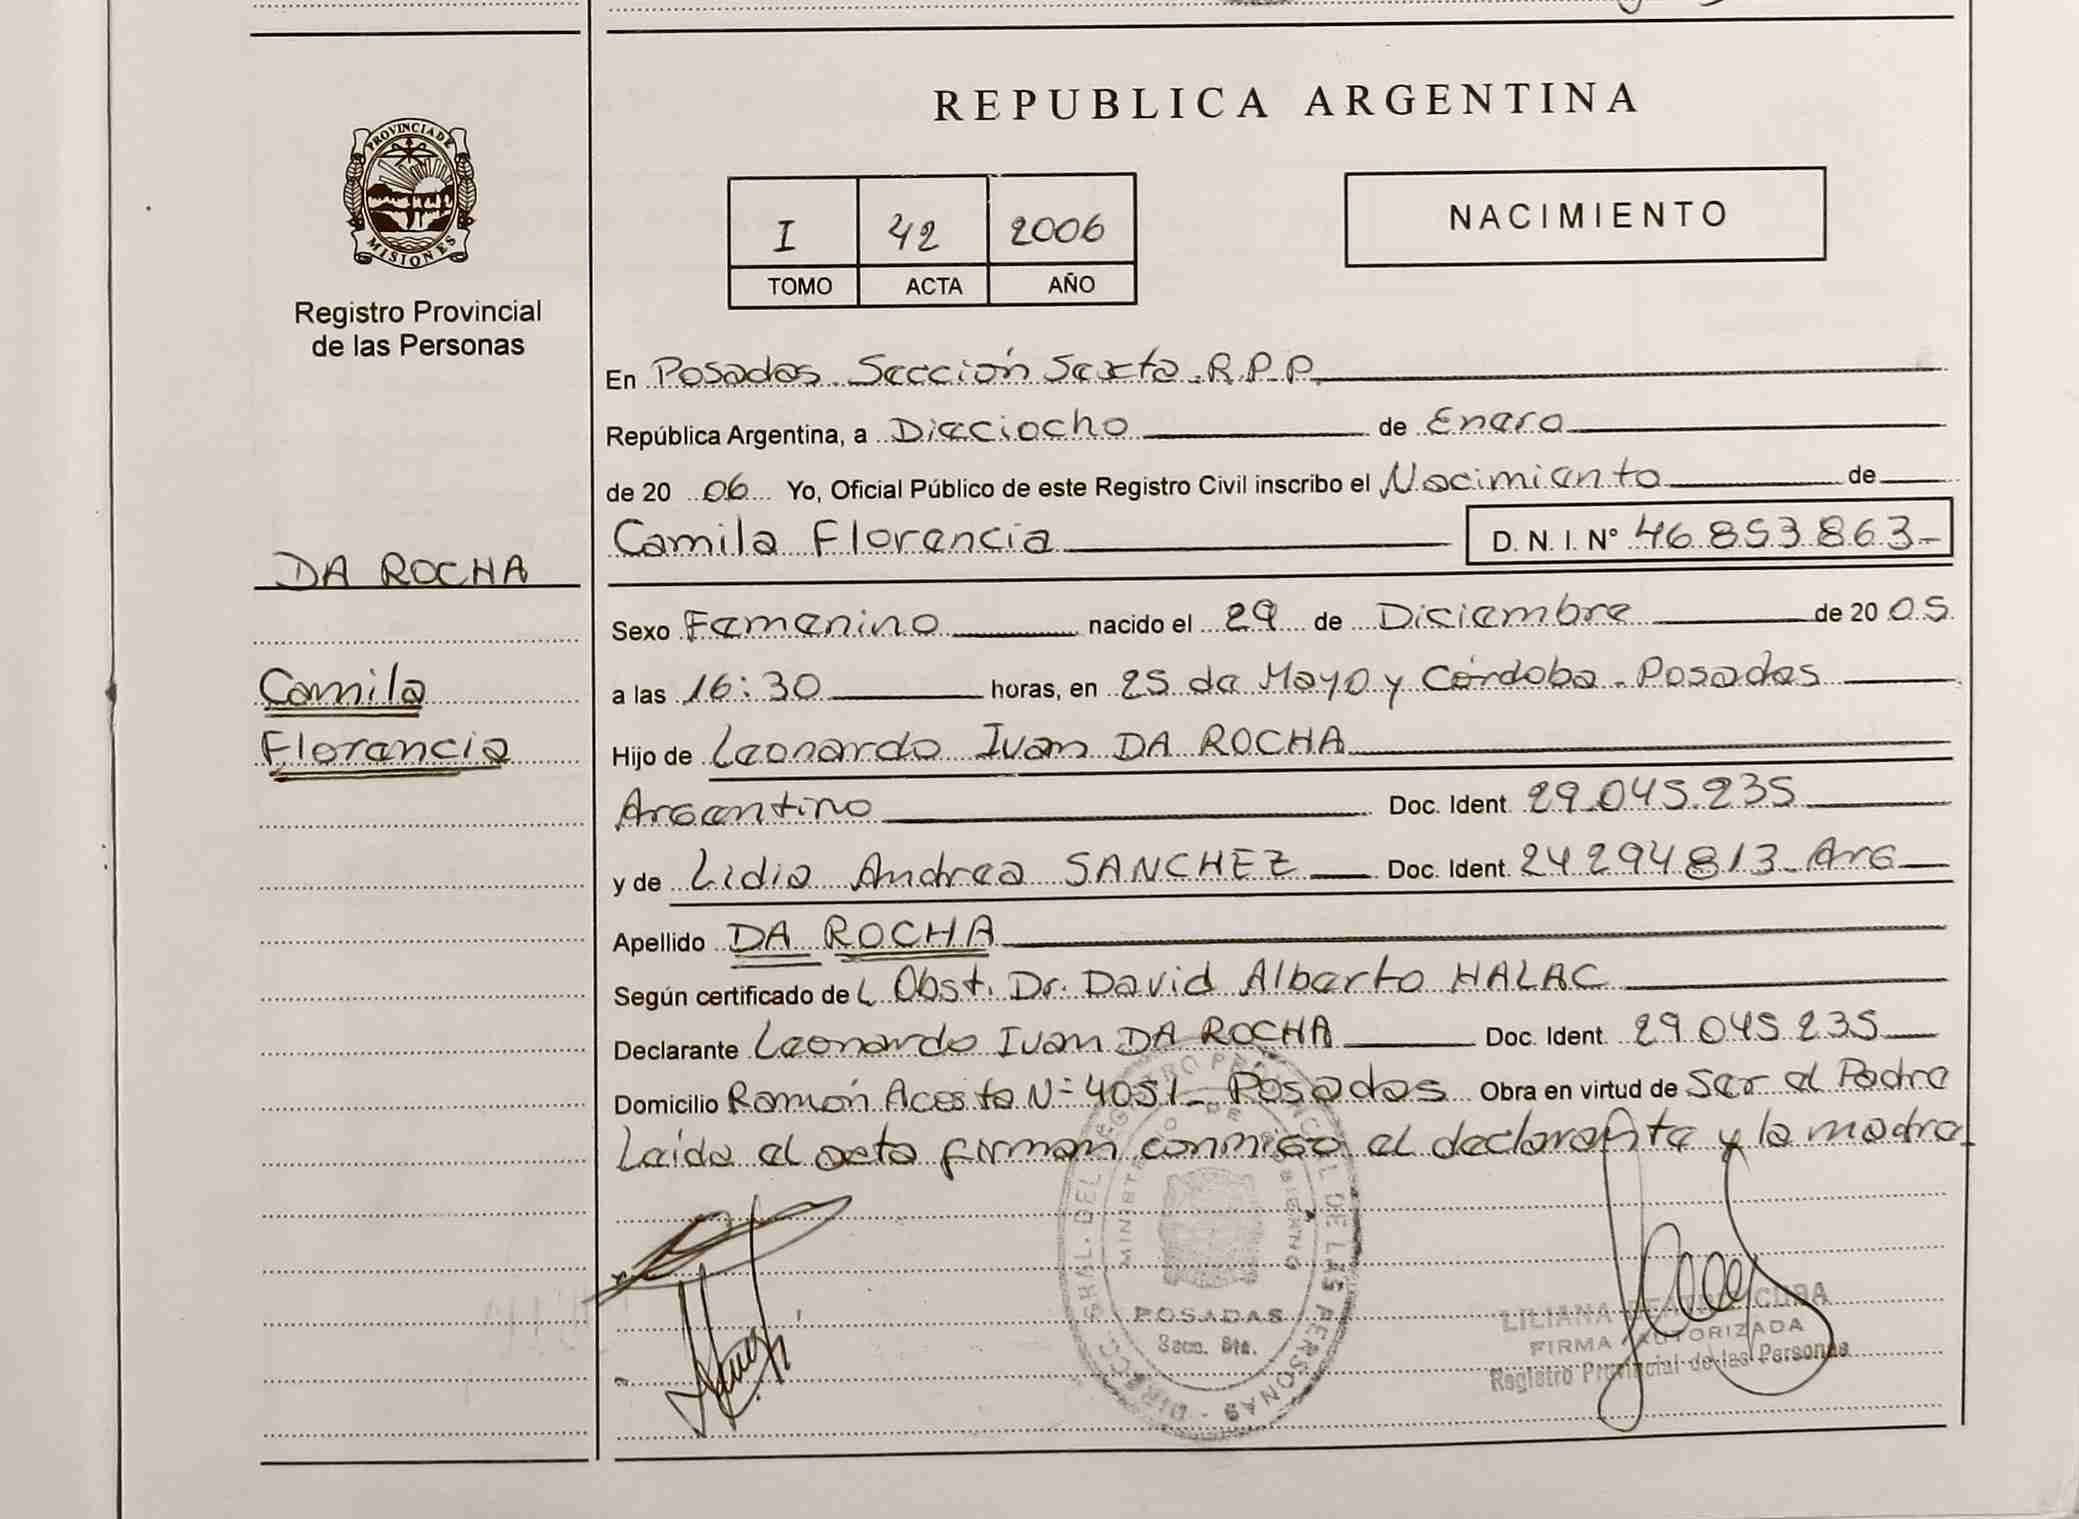 REPUBLICA ARGENTINA
PROVINCIA DE
MISIONES
Registro Provincial
de las Personas
I 42 2006
TOMO ACTA AÑO
NACIMIENTO
En Posadas Sección Sexta R.P.P.
República Argentina, a Dieciocho de Enero
de 20 06 Yo, Oficial Público de este Registro Civil inscribo el Nacimiento de
Camila Florencia D. N. I. Nº 46.853.863-
DA ROCHA
Camila
Florencia
Sexo Femenino nacido el 29 de Diciembre de 20 05
a las 16:30 horas, en 25 de Mayo y Córdoba - Posadas
Hijo de Leonardo Ivan DA ROCHA
Argentino Doc. Ident. 29.045.235
y de Lidia Andrea SANCHEZ Doc. Ident. 24294813 Arg
Apellido DA ROCHA
Según certificado del Obst. Dr. David Alberto HALAC
Declarante Leonardo Ivan DA ROCHA Doc. Ident. 29.045.235
Domicilio Ramón Acosta Nº 4051 - Posadas Obra en virtud de Ser el Padre
Leída el acta firman conmigo el declarante y la madre
REGISTRO PROVINCIAL DE LAS PERSONAS
POSADAS
Secc. 6ta.
LILIANA CUBA
FIRMA AUTORIZADA
Registro Provincial de las Personas